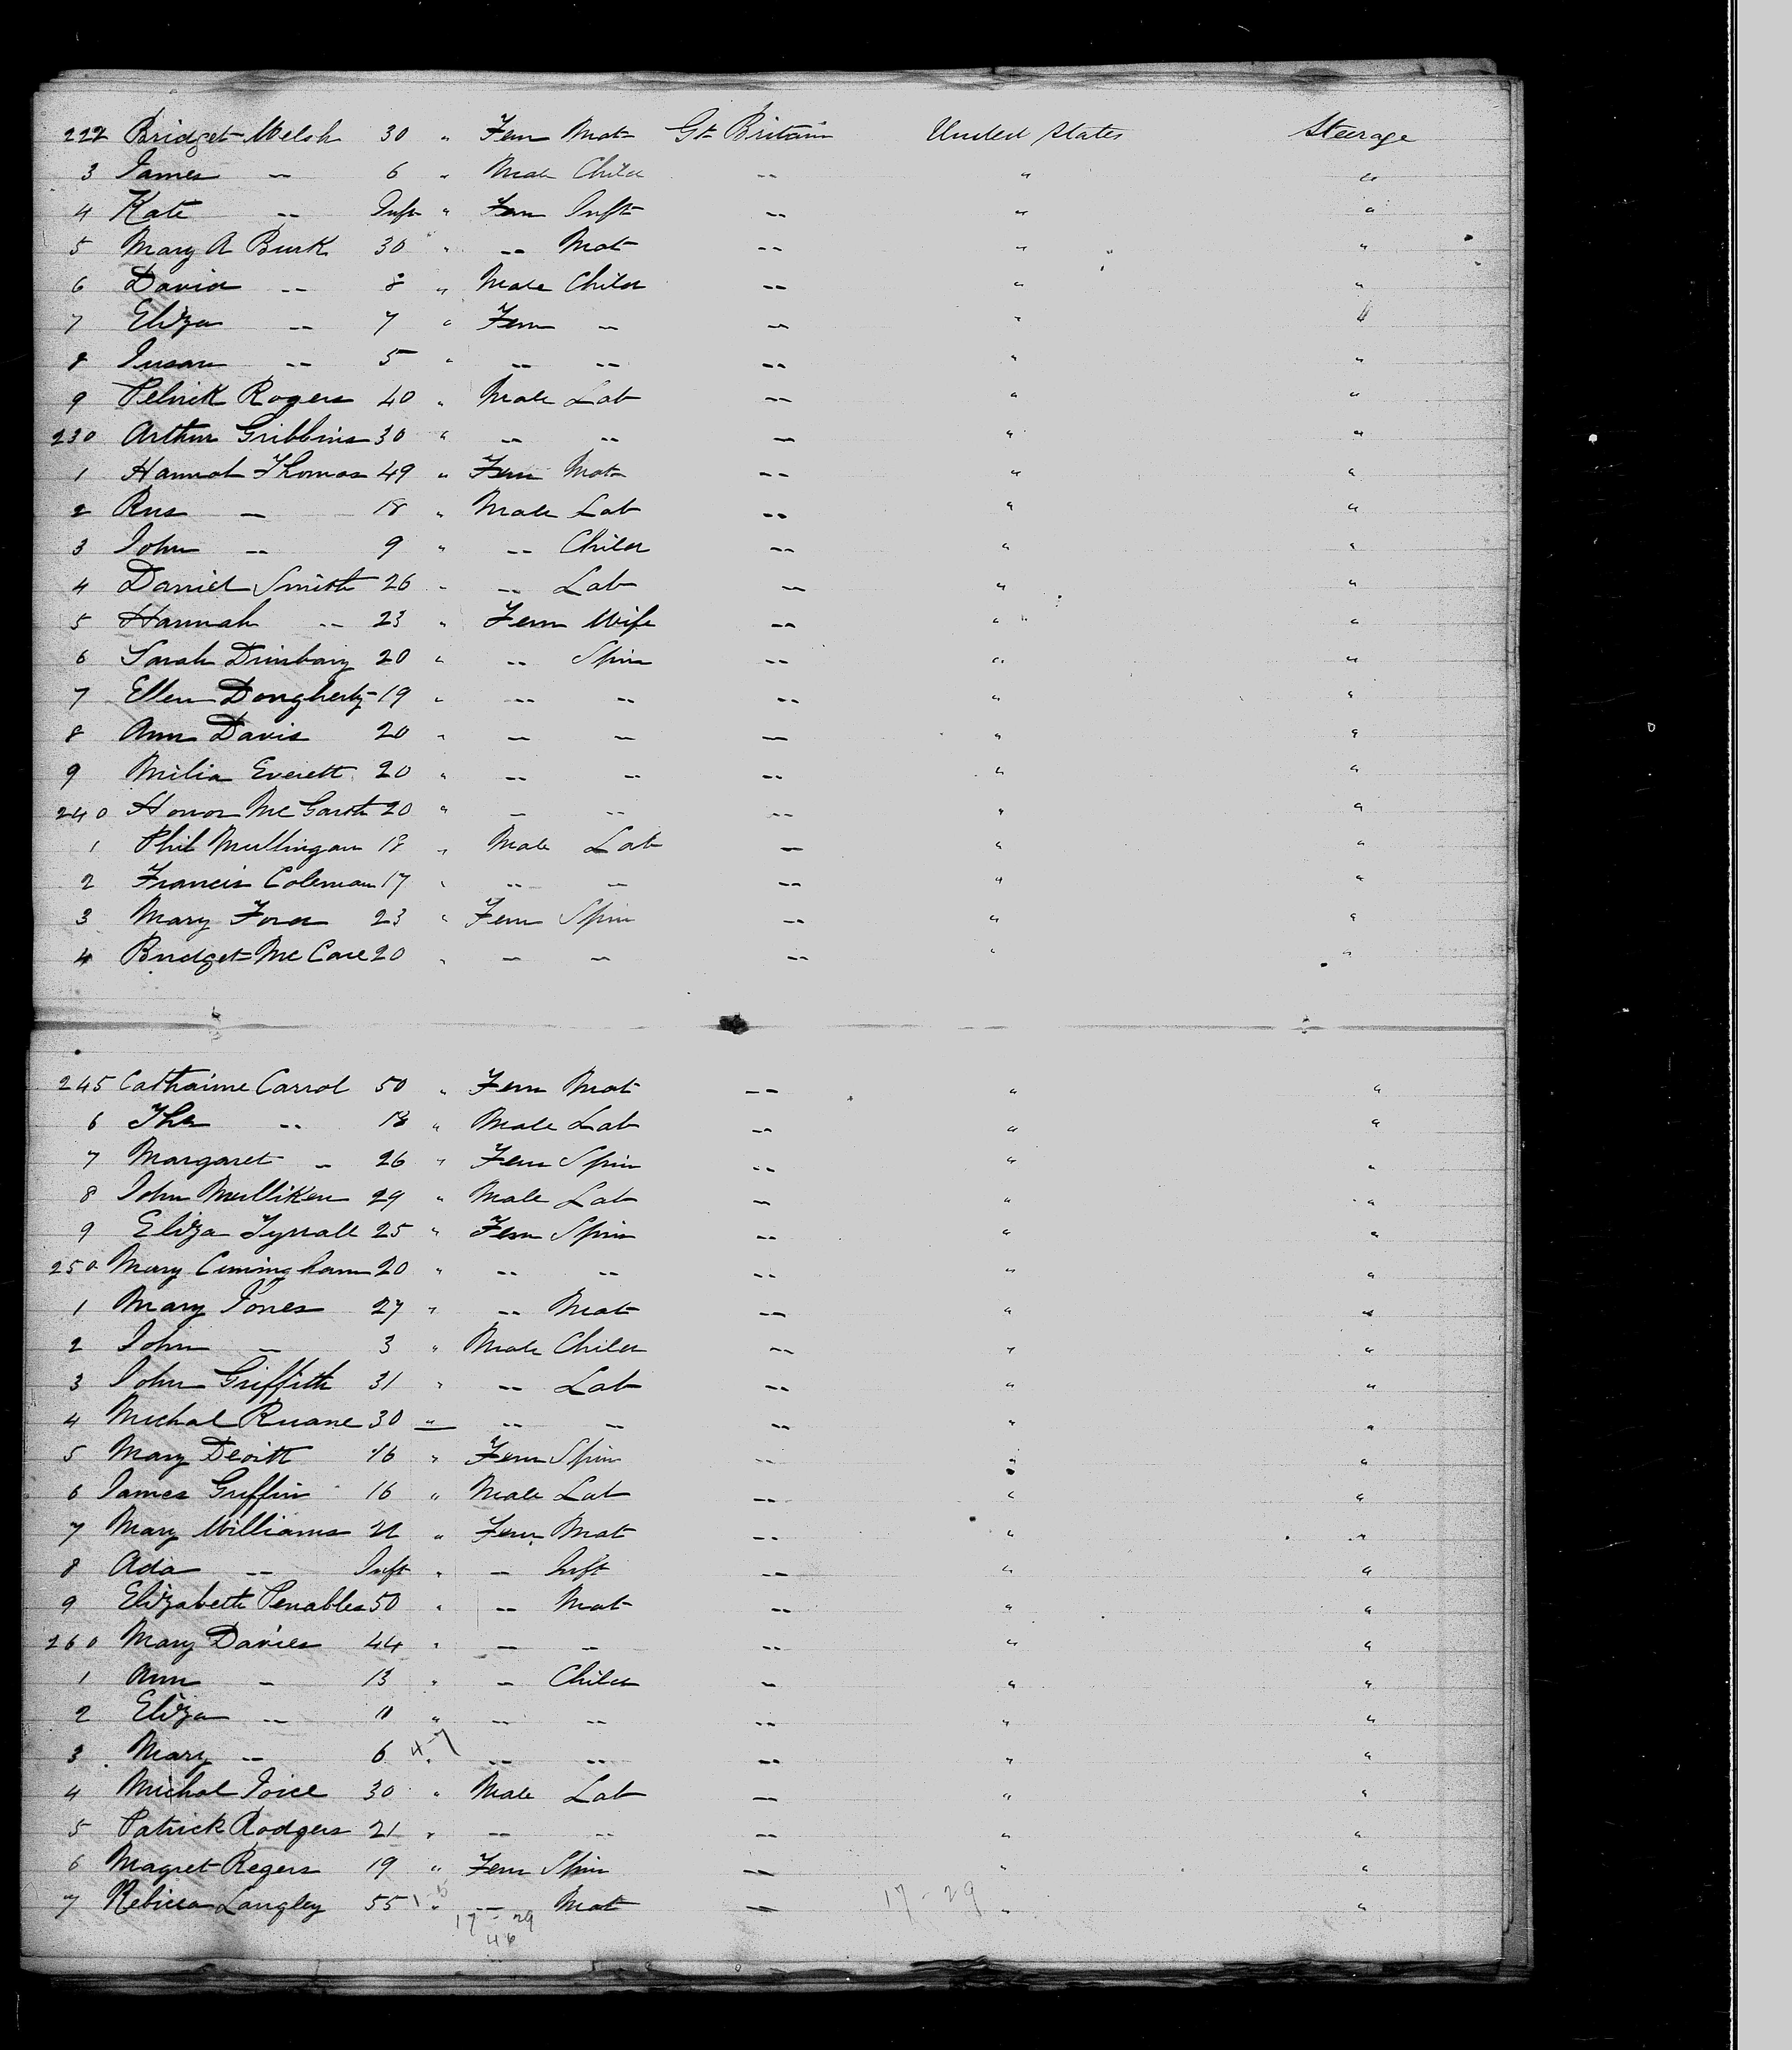 222 Bridget Welsh 30 " Fem Mat Gt Britain United States Steerage
3 James -- 6 " Male Child -- " "
4 Kate -- Inft " Fem Inft -- " "
5 Mary A Burk 30 " -- Mat -- " "
6 David -- 8 " Male Child -- " "
7 Eliza -- 7 " Fem -- -- " "
8 Susan -- 5 " -- -- -- " "
9 Rogers 40 " Male Lab -- " "
230 Arthur Gribbins 30 " -- -- -- " "
1 Hannah Thomas 49 " Fem Mat -- " "
2 Rus -- 18 " Male Lab -- " "
3 John -- 9 " -- Child -- " "
4 Daniel Smith 26 " -- Lab -- " "
5 Hannah -- 23 " Fem Wife -- " "
6 Sarah 20 " -- Spin -- " "
7 Ellen Dougherty 19 " -- -- -- " "
8 Ann Davis 20 " -- -- -- " "
9 Milia Everett 20 " -- -- -- " "
240 Honor 20 " -- -- -- " "
1 Phil Mullingan 18 " Male Lab -- " "
2 Francis Coleman 17 " -- -- -- " "
3 Mary Ford 23 " Fem Spin -- " "
4 Bridget 20 " -- -- -- " "
245 Cathaine Carrol 50 " Fem Mat -- " "
6 Thos -- 18 " Male Lab -- " "
7 Margaret -- 26 " Fem Spin -- " "
8 John Mulliken 29 " Male Lab -- " "
9 Eliza Tyrrall 25 " Fem Spin -- " "
250 Mary Cuningham 20 " -- -- -- " "
1 Mary Jones 27 " -- Mat -- " "
2 John -- 3 " Male Child -- " "
3 John Griffith 31 " -- Lab -- " "
4 Michal Ruane 30 " -- -- -- " "
5 Mary Devitt 16 " Fem Spin -- " "
6 James Griffin 16 " Male Lab -- " "
7 Mary Williams " Fem Mat -- " "
8 Ada -- Inft " -- Inft -- " "
9 Elizabeth Penables 50 " -- Mat -- " "
260 Mary Davies 44 " -- -- -- " "
1 Ann -- 13 " -- Child -- " "
2 Eliza -- 11 " -- -- -- " "
3 Mary -- 6 4-7 " -- -- -- " "
4 Michal Joice 30 " Male Lab -- " "
5 Patrick Rodgers 21 " -- -- -- " "
6 Magret Regers 19 " Fem Spin -- " "
7 Langley 55 " -- Mat -- 17-29 " "
17-29
46